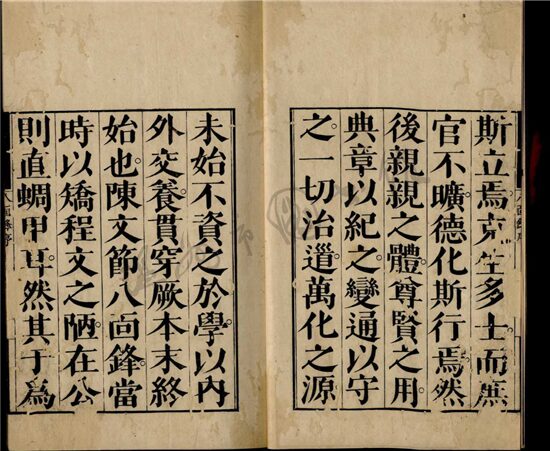 斯立焉克生多士而庶
官不曠德化斯行焉然
後親親之體尊賢之用
典章以紀之變通以守
之一切治道萬化之源
未始不資之於學以内
外交養貫穿厥本末終
始也陳文節八面鋒當
時以矯程文之陋在公
則直蜩甲耳然其于爲